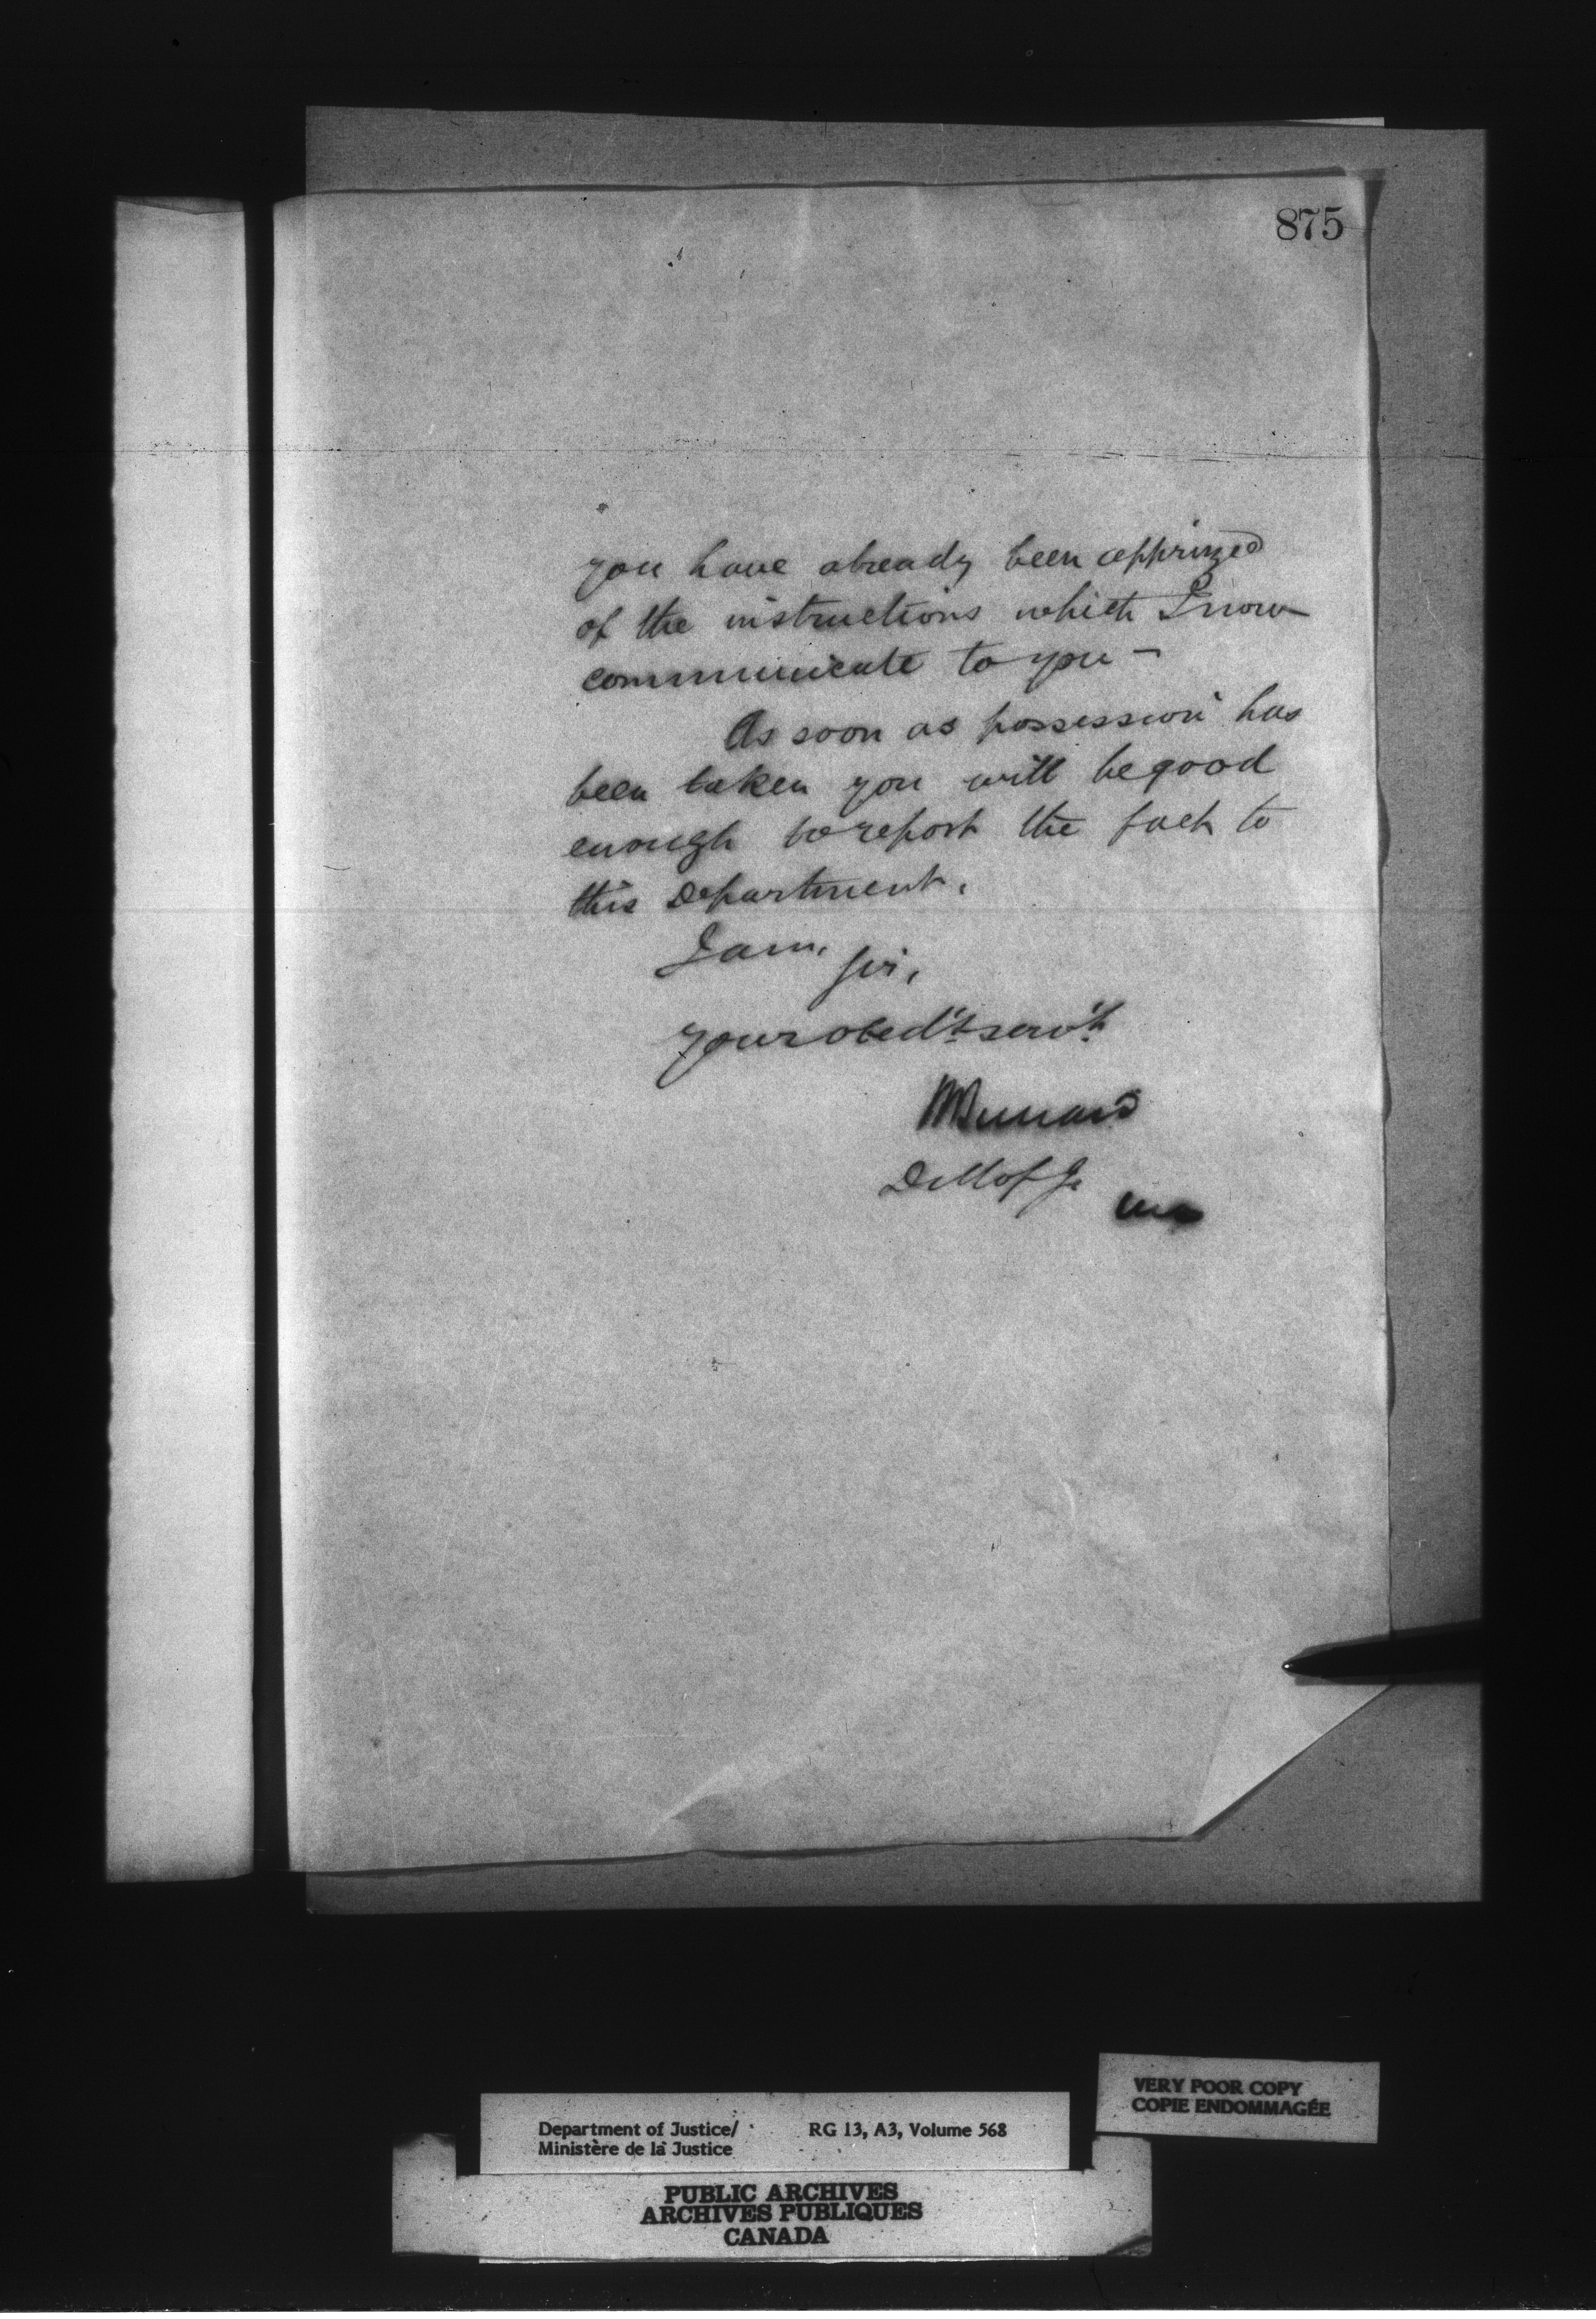 875
you have already been apprized
of the instructions which I now
communicate to you —
As soon as possession has
been taken you will be good
enough to report the fact to
this Department.
I am, Sir,
your obed't serv't
HBernard
D M of J.
VERY POOR COPY
COPIE ENDOMMAGÉE
Department of Justice/ RG 13, A3, Volume 568
Ministère de la Justice
PUBLIC ARCHIVES
ARCHIVES PUBLIQUES
CANADA